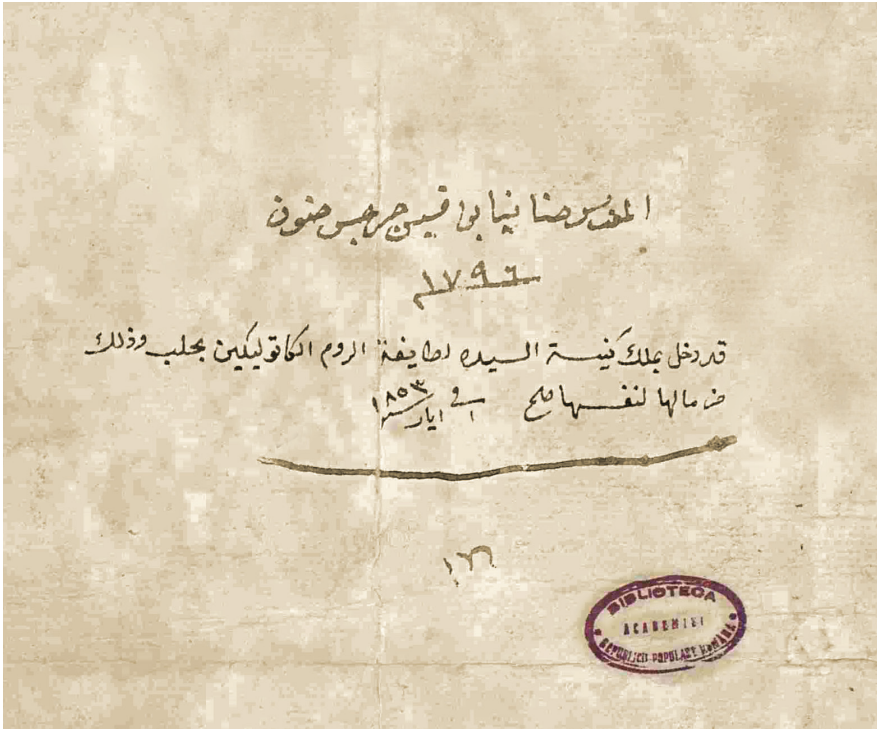 المقدسي حنا بن قسيس جرجس حنون
١٧٩٦
قد دخل بملك كنيسة السيده لطايفة الروم الكاتوليكين بحلب وذلك
من مالها لنفسها صح في ١ ايار سنة ١٨٥٣
١٢٦
BIBLIOTECA
ACADEMIEI
REPUBLICII POPULARE ROMÂNE